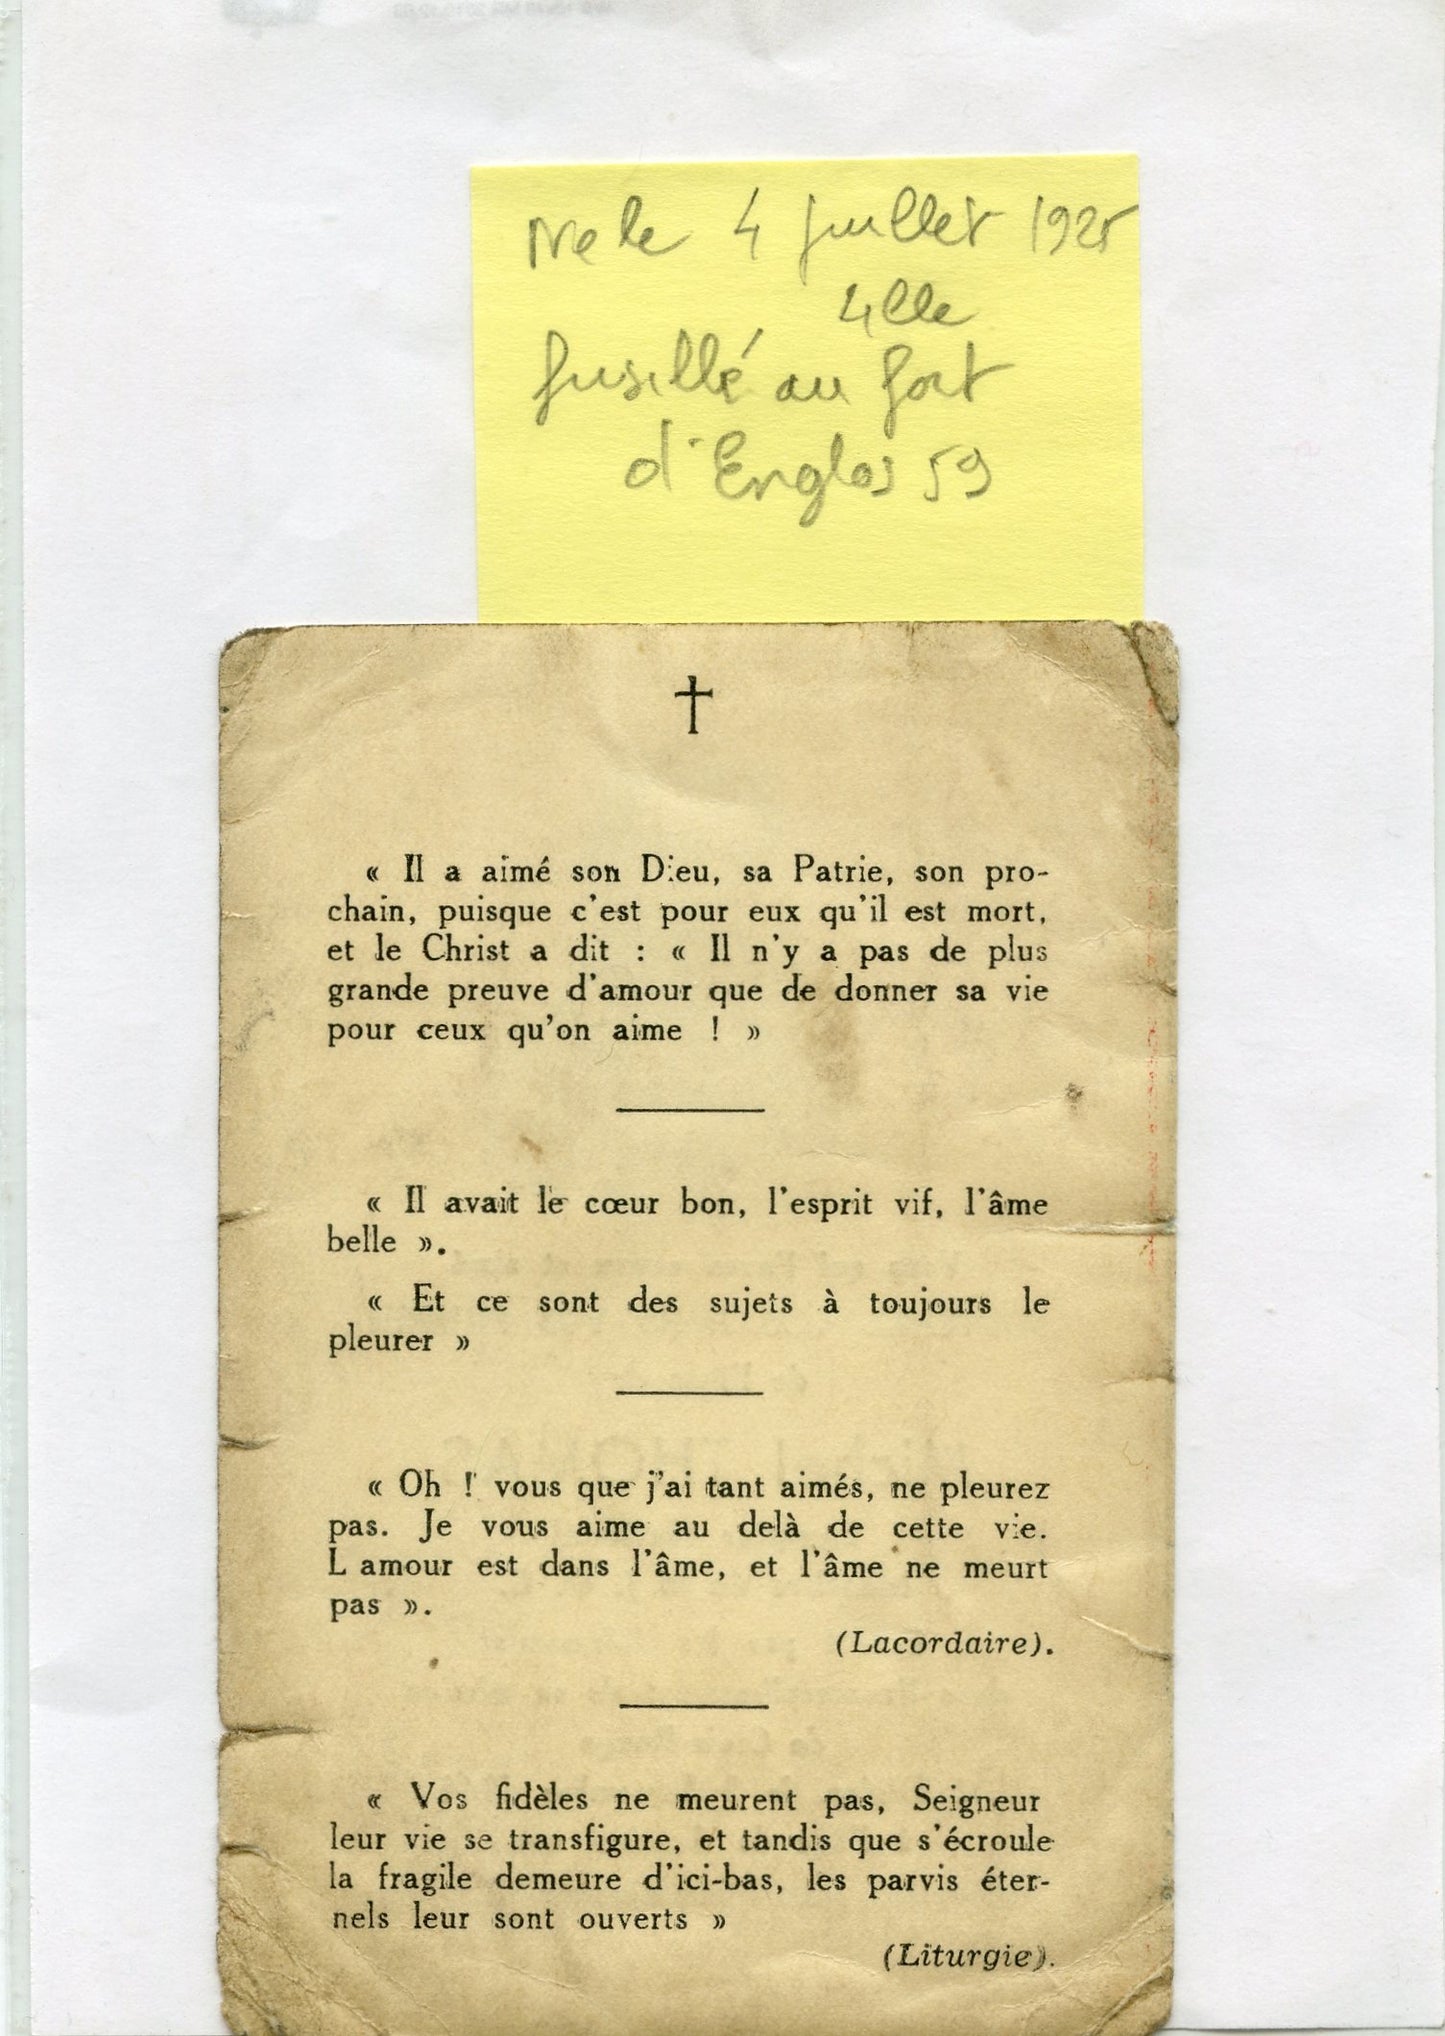 Ne le 4 juillet 1925
Lille
fusillé au fort
d'Englos 59
« Il a aimé son Dieu, sa Patrie, son pro-
chain, puisque c'est pour eux qu'il est mort,
et le Christ a dit : « Il n'y a pas de plus
grande preuve d'amour que de donner sa vie
pour ceux qu'on aime ! »
« Il avait le cœur bon, l'esprit vif, l'âme
belle ».
« Et ce sont des sujets à toujours le
pleurer »
« Oh ! vous que j'ai tant aimés, ne pleurez
pas. Je vous aime au delà de cette vie.
L amour est dans l'âme, et l'âme ne meurt
pas ».
(Lacordaire).
« Vos fidèles ne meurent pas, Seigneur
leur vie se transfigure, et tandis que s'écroule
la fragile demeure d'ici-bas, les parvis éter-
nels leur sont ouverts »
(Liturgie).